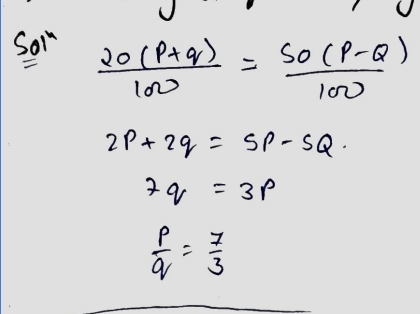 Solⁿ
20(P+q)/100 = 50(P-Q)/100
2P + 2q = 5P - 5Q.
7q = 3P
P/q = 7/3